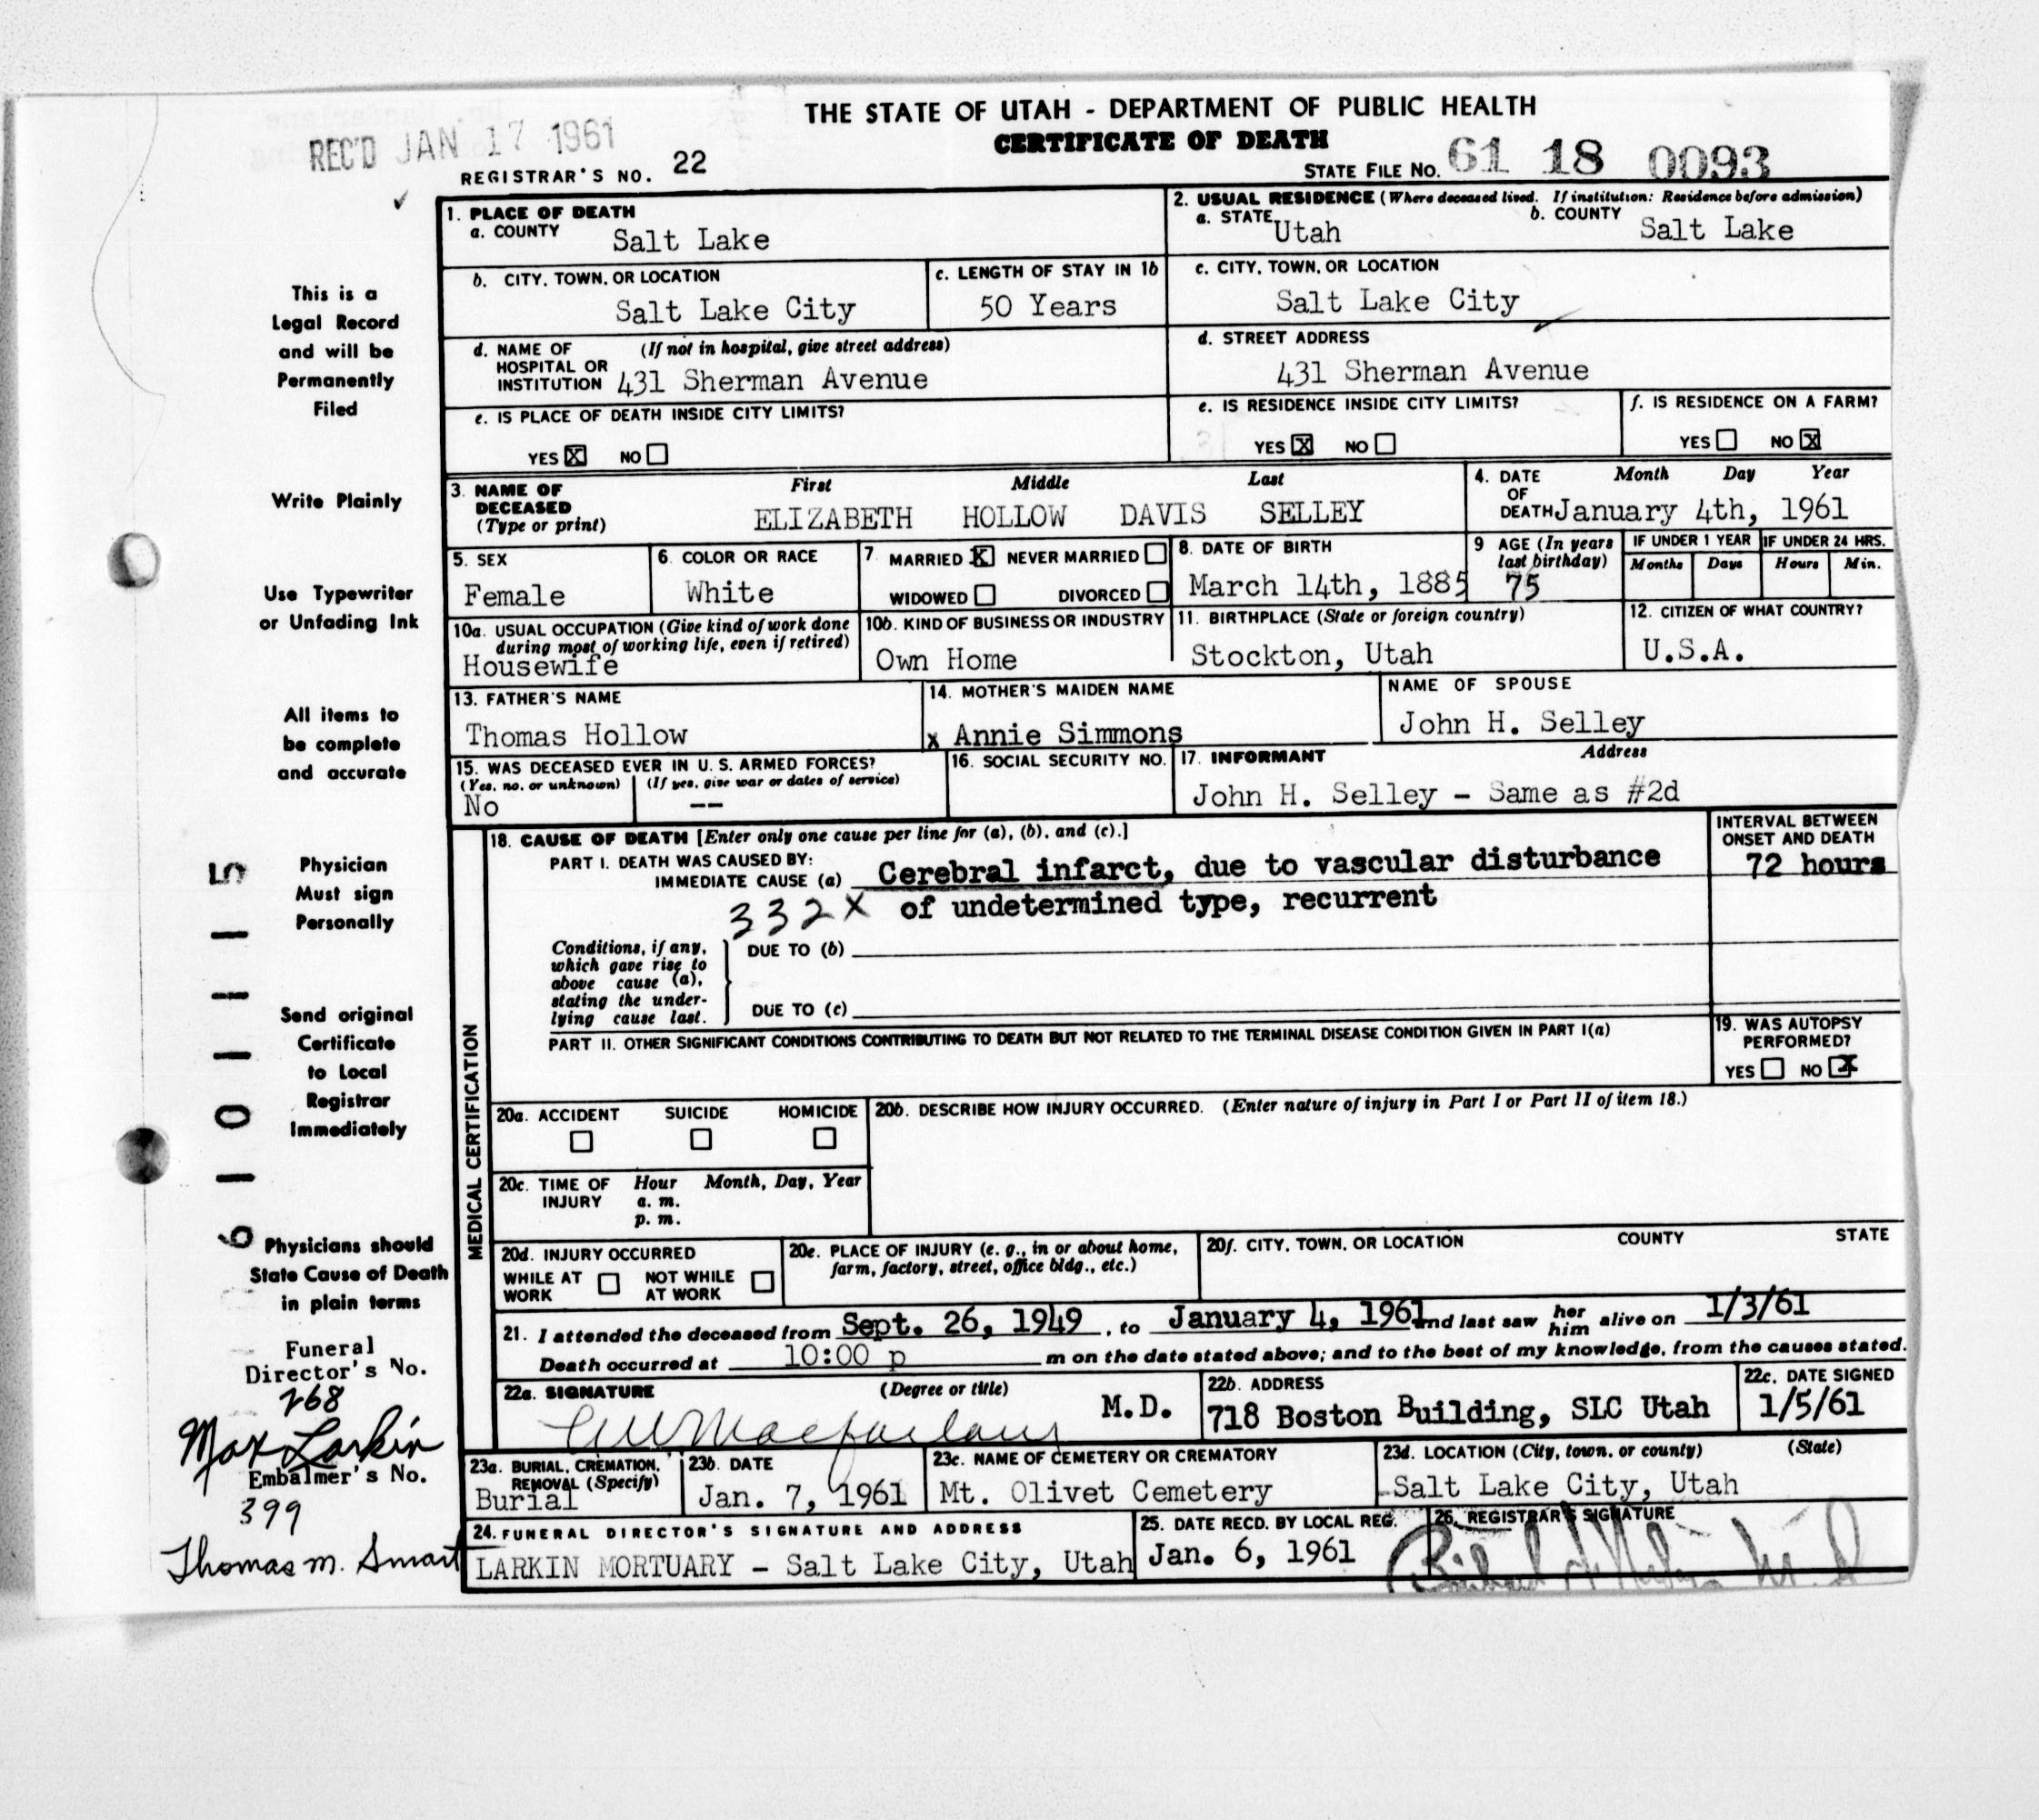 THE STATE OF UTAH - DEPARTMENT OF PUBLIC HEALTH
CERTIFICATE OF DEATH
REC'D JAN 17 1961
REGISTRAR'S NO. 22
STATE FILE NO. 61 18 0093
1. PLACE OF DEATH
a. COUNTY Salt Lake
2. USUAL RESIDENCE (Where deceased lived. If institution: Residence before admission)
a. STATE Utah b. COUNTY Salt Lake
b. CITY, TOWN, OR LOCATION Salt Lake City
c. LENGTH OF STAY IN 1b 50 Years
c. CITY, TOWN, OR LOCATION Salt Lake City
d. NAME OF HOSPITAL OR INSTITUTION (If not in hospital, give street address) 431 Sherman Avenue
d. STREET ADDRESS 431 Sherman Avenue
e. IS PLACE OF DEATH INSIDE CITY LIMITS?
YES X NO
e. IS RESIDENCE INSIDE CITY LIMITS?
YES X NO
f. IS RESIDENCE ON A FARM?
YES NO X
3. NAME OF DECEASED (Type or print) First Middle Last
ELIZABETH HOLLOW DAVIS SELLEY
4. DATE OF DEATH Month Day Year
January 4th, 1961
5. SEX Female
6. COLOR OR RACE White
7. MARRIED X NEVER MARRIED
WIDOWED DIVORCED
8. DATE OF BIRTH March 14th, 1885
9 AGE (In years last birthday) 75
IF UNDER 1 YEAR Months Days
IF UNDER 24 HRS. Hours Min.
10a. USUAL OCCUPATION (Give kind of work done during most of working life, even if retired)
Housewife
10b. KIND OF BUSINESS OR INDUSTRY
Own Home
11. BIRTHPLACE (State or foreign country)
Stockton, Utah
12. CITIZEN OF WHAT COUNTRY?
U.S.A.
13. FATHER'S NAME
Thomas Hollow
14. MOTHER'S MAIDEN NAME
x Annie Simmons
NAME OF SPOUSE
John H. Selley
15. WAS DECEASED EVER IN U. S. ARMED FORCES?
(Yes, no, or unknown) (If yes, give war or dates of service)
No --
16. SOCIAL SECURITY NO.
17. INFORMANT Address
John H. Selley - Same as #2d
MEDICAL CERTIFICATION
18. CAUSE OF DEATH [Enter only one cause per line for (a), (b), and (c).]
INTERVAL BETWEEN ONSET AND DEATH
PART I. DEATH WAS CAUSED BY:
IMMEDIATE CAUSE (a) Cerebral infarct, due to vascular disturbance 72 hours
332X of undetermined type, recurrent
Conditions, if any, which gave rise to above cause (a), stating the underlying cause last.
DUE TO (b)
DUE TO (c)
PART II. OTHER SIGNIFICANT CONDITIONS CONTRIBUTING TO DEATH BUT NOT RELATED TO THE TERMINAL DISEASE CONDITION GIVEN IN PART I(a)
19. WAS AUTOPSY PERFORMED?
YES NO X
20a. ACCIDENT SUICIDE HOMICIDE
20b. DESCRIBE HOW INJURY OCCURRED. (Enter nature of injury in Part I or Part II of item 18.)
20c. TIME OF INJURY Hour Month, Day, Year
a. m.
p. m.
20d. INJURY OCCURRED
WHILE AT WORK NOT WHILE AT WORK
20e. PLACE OF INJURY (e. g., in or about home, farm, factory, street, office bldg., etc.)
20f. CITY, TOWN, OR LOCATION COUNTY STATE
21. I attended the deceased from Sept. 26, 1949, to January 4, 1961 and last saw her him alive on 1/3/61
Death occurred at 10:00 p m on the date stated above; and to the best of my knowledge, from the causes stated.
22a. SIGNATURE (Degree or title)
Macfarlane M.D.
22b. ADDRESS
718 Boston Building, SLC Utah
22c. DATE SIGNED
1/5/61
23a. BURIAL, CREMATION, REMOVAL (Specify)
Burial
23b. DATE
Jan. 7, 1961
23c. NAME OF CEMETERY OR CREMATORY
Mt. Olivet Cemetery
23d. LOCATION (City, town, or county) (State)
Salt Lake City, Utah
24. FUNERAL DIRECTOR'S SIGNATURE AND ADDRESS
LARKIN MORTUARY - Salt Lake City, Utah
25. DATE RECD. BY LOCAL REG.
Jan. 6, 1961
26. REGISTRAR'S SIGNATURE
This is a
Legal Record
and will be
Permanently
Filed
Write Plainly
Use Typewriter
or Unfading Ink
All items to
be complete
and accurate
Physician
Must sign
Personally
Send original
Certificate
to Local
Registrar
Immediately
Physicians should
State Cause of Death
in plain terms
Funeral
Director's No.
268
Max Larkin
Embalmer's No.
399
Thomas M. Smart